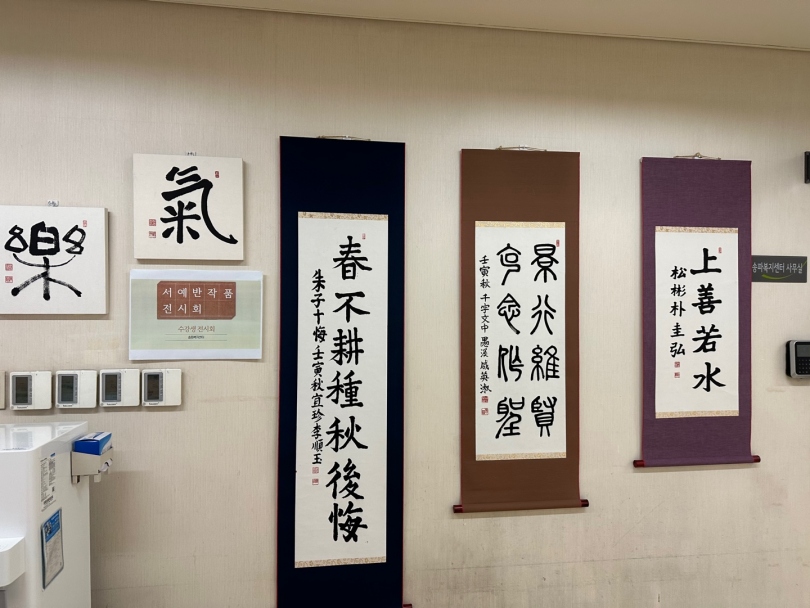 樂
氣
서예반작품
전시회
수강생 전시회
春不耕種秋後悔
朱子十悔 壬寅秋 宜珍 李順玉
景行維賢
克念作聖
壬寅秋 千字文中 英淑
上善若水
松彬 朴圭弘
송파복지센터 사무실